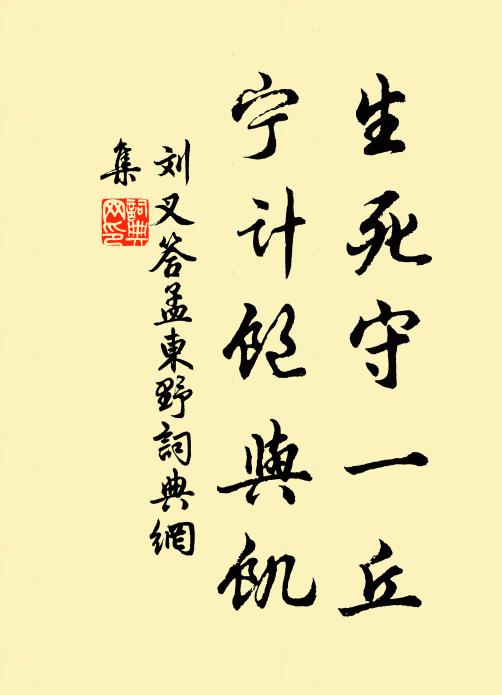 生死守一丘
宁计饱與飢
刘叉答孟東野詞典網
集
詞典
网印